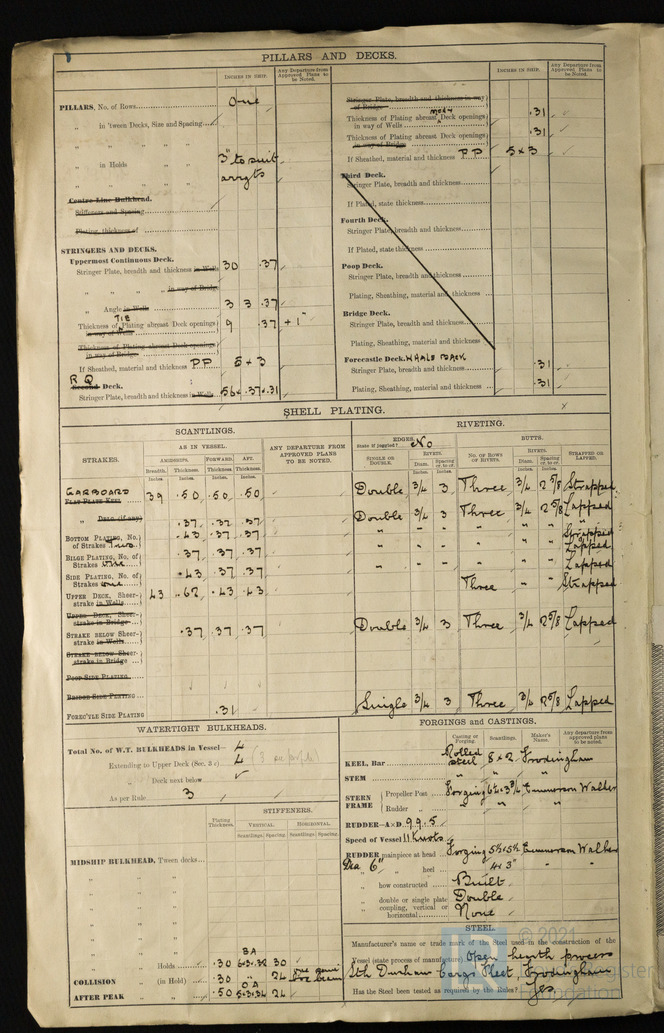 PILLARS AND DECKS.
INCHES IN SHIP.
Any Departure from Approved Plans to be Noted.
INCHES IN SHIP.
Any Departure from Approved Plans to be Noted.
PILLARS, No. of Rows One
„ in 'tween Decks, Size and Spacing
„ in Holds 3" to suit
arrgts
Centre Line Bulkhead.
Stiffeners and Spacing
Plating, thickness of
STRINGERS AND DECKS.
Uppermost Continuous Deck.
Stringer Plate, breadth and thickness in Wells 30 .37
„ „ „ in way of Bridge
„ Angle in Wells 3 3 .37
TIE
Thickness of Plating abreast Deck openings in way of Wells 9 .37 +1"
Thickness of Plating abreast Deck openings in way of Bridge
If Sheathed, material and thickness PP 5 x 3
RQ
Second Deck.
Stringer Plate, breadth and thickness in Wells 56 x .37 x .31
Stringer Plate, breadth and thickness in way of Bridge
Thickness of Plating abreast Deck openings in way of Wells .31
Thickness of Plating abreast Deck openings in way of Bridge .31
If Sheathed, material and thickness PP 5 x 3
Third Deck.
Stringer Plate, breadth and thickness
If Plated, state thickness
Fourth Deck.
Stringer Plate, breadth and thickness
If Plated, state thickness
Poop Deck.
Stringer Plate, breadth and thickness
Plating, Sheathing, material and thickness
Bridge Deck.
Stringer Plate, breadth and thickness
Plating, Sheathing, material and thickness
Forecastle Deck. WHALE BACK
Stringer Plate, breadth and thickness .31
Plating, Sheathing, material and thickness .31
SHELL PLATING.
SCANTLINGS.
RIVETING.
STRAKES.
AS IN VESSEL.
ANY DEPARTURE FROM APPROVED PLANS TO BE NOTED.
EDGES. No
State if joggled?
BUTTS.
AMIDSHIPS. FORWARD. AFT.
Breadth. Thickness. Thickness. Thickness.
Inches. Inches. Inches. Inches.
SINGLE OR DOUBLE.
RIVETS.
Diam. Spacing cr. to cr.
Inches. Inches.
No. OF ROWS OF RIVETS.
RIVETS.
Diam. Spacing cr. to cr.
Inches. Inches.
STRAPPED OR LAPPED.
GARBOARD
FLAT PLATE KEEL 39 .50 .50 .50 Double 3/4 3 Three 3/4 2 5/8 Strapped
„ Dblg. (if any) Double 3/4 3 Three 3/4 2 5/8 Lapped
BOTTOM PLATING, No. of Strakes Two .37 .37 .37
.43 .37 .37 Strapped
BILGE PLATING, No. of Strakes one .37 .37 .37 Lapped
SIDE PLATING, No. of Strakes one .43 .37 .37 Lapped
UPPER DECK, Sheerstrake in Wells 43 .62 .43 .43 Three „ „ Strapped
UPPER DECK, Sheerstrake in Bridge
STRAKE BELOW Sheerstrake in Wells .37 .37 .37 Double 3/4 3 Three 3/4 2 5/8 Lapped
STRAKE BELOW Sheerstrake in Bridge
POOP SIDE PLATING
BRIDGE SIDE PLATING
FOREC'TLE SIDE PLATING .31 Single 3/4 3 Three 3/4 2 5/8 Lapped
WATERTIGHT BULKHEADS.
Total No. of W.T. BULKHEADS in Vessel— 4
„ Extending to Upper Deck (Sec. 3 c) 4
„ Deck next below
As per Rule 3
Plating Thickness.
STIFFENERS.
VERTICAL. HORIZONTAL.
Scantlings. Spacing. Scantlings. Spacing.
MIDSHIP BULKHEAD, 'Tween decks
BA
„ Holds .30 6.3.32 30
COLLISION „ (in Hold) .30 „ 24
OA
AFTER PEAK „ .50 5.3.34 24
FORGINGS AND CASTINGS.
Casting or Forging. Scantlings. Maker's Name. Any departure from approved plans to be noted.
Inches.
KEEL, Bar Rolled steel 8 x 2 Frodingham
STEM „ „ „
STERN FRAME
Propeller Post Forging 6½ x 3¾ Cummerson Walker
Rudder „ „ „ „
RUDDER—A x D. 99.5
Speed of Vessel 11 knots
RUDDER mainpiece at head Forging 5½ x 5½ Cummerson Walker
Dia 6" „ heel 4 x 3"
„ how constructed Built
„ double or single plate Double
„ coupling, vertical or horizontal None
STEEL.
Manufacturer's name or trade mark of the Steel used in the construction of the
Vessel (state process of manufacture) Open hearth process
Sth Durham Cargo Fleet, Frodingham
Has the Steel been tested as required by the Rules? Yes
© 2021
LR
Lloyd's Register
Foundation